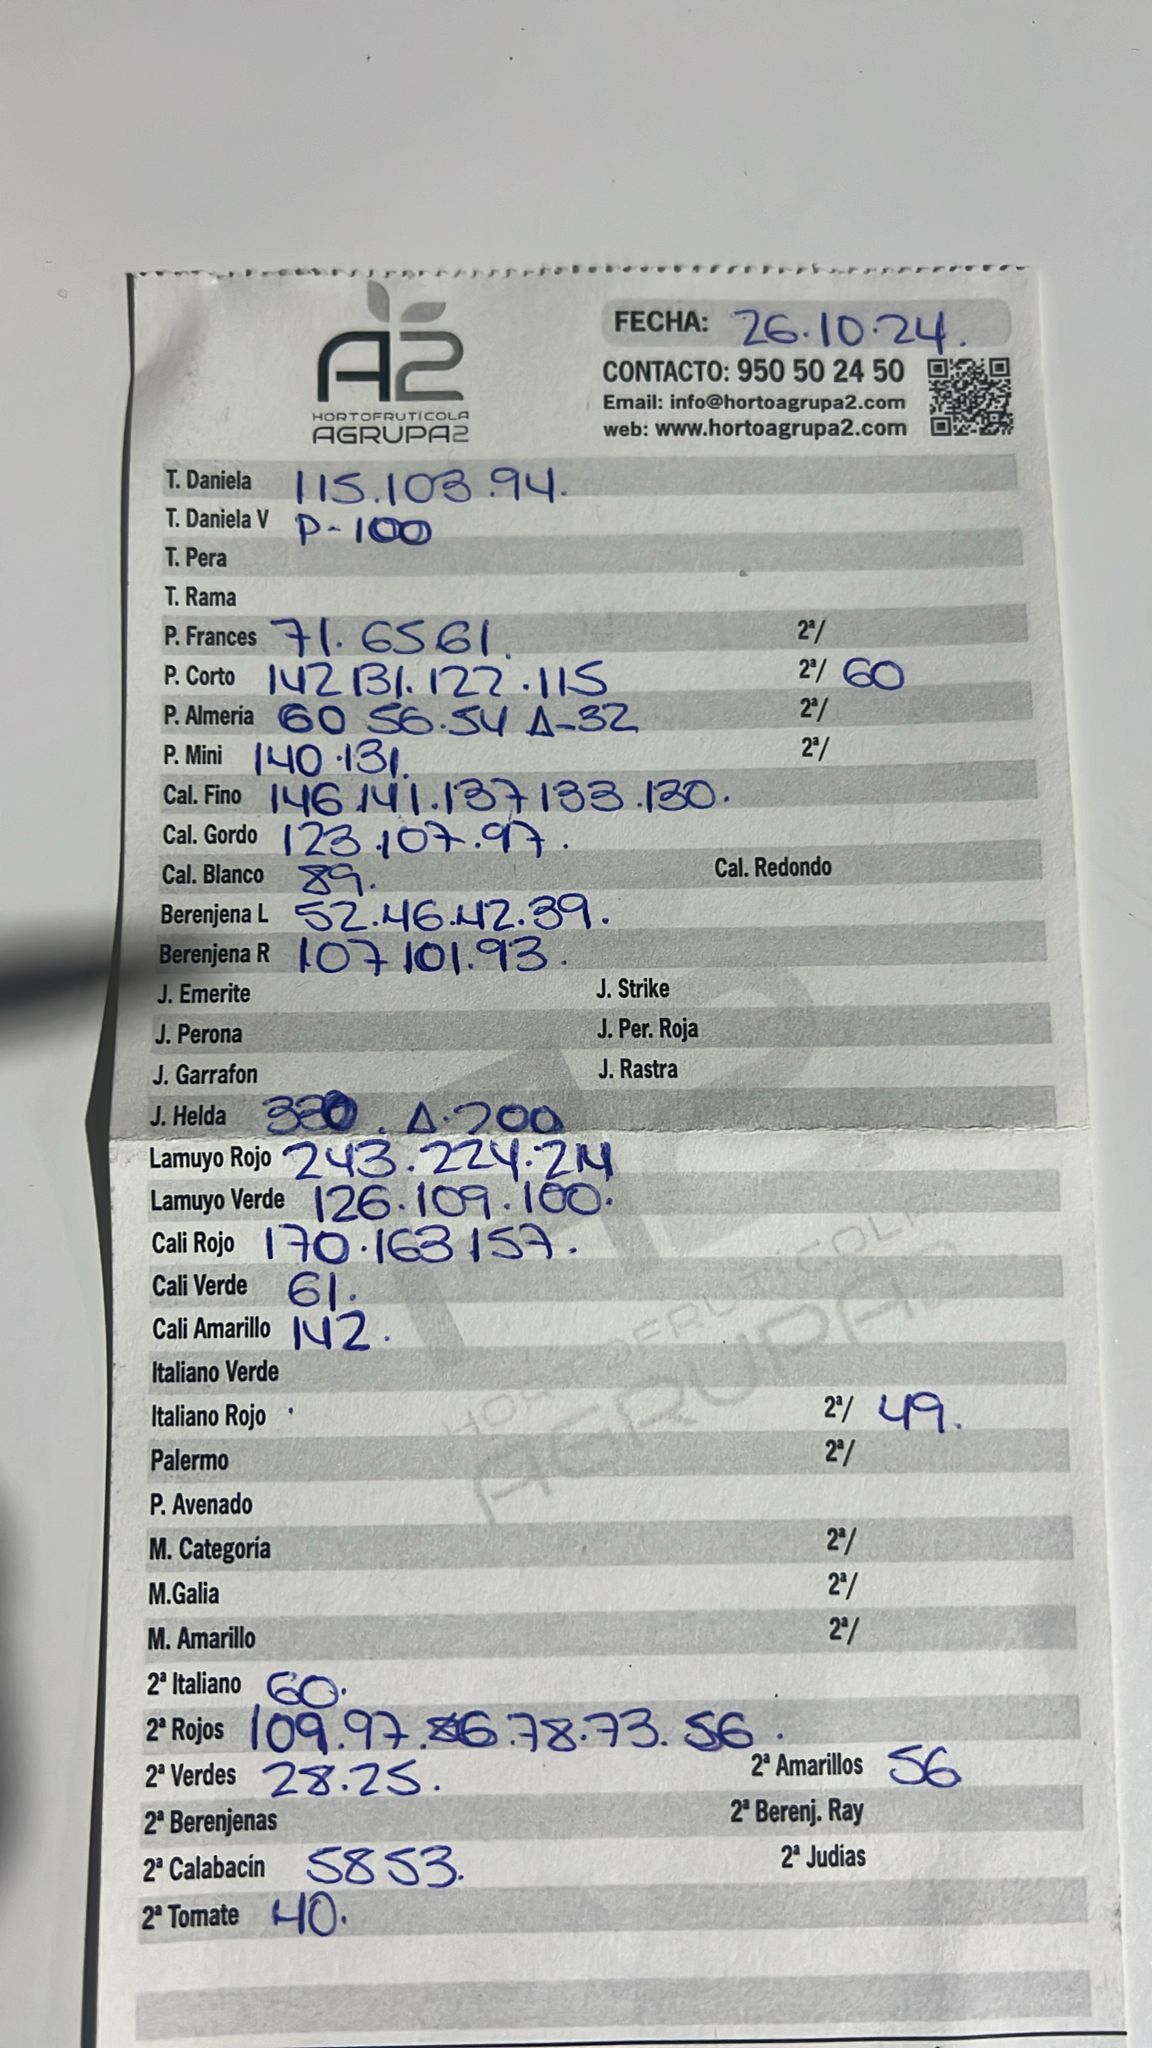 A2
HORTOFRUTÍCOLA
AGRUPA2
FECHA: 26.10.24.
CONTACTO: 950 50 24 50
Email: info@hortoagrupa2.com
web: www.hortoagrupa2.com
T. Daniela 115.103.94.
T. Daniela V P-100
T. Pera
T. Rama
P. Frances 71. 65 61. 2ª/
P. Corto 142 131. 122 .115 2ª/ 60
P. Almeria 60 56.54 Δ-32 2ª/
P. Mini 140.131. 2ª/
Cal. Fino 146.141.137 133.130.
Cal. Gordo 123.107.97.
Cal. Blanco 89. Cal. Redondo
Berenjena L 52.46.42.39.
Berenjena R 107 101.93.
J. Emerite J. Strike
J. Perona J. Per. Roja
J. Garrafon J. Rastra
J. Helda Δ.200
Lamuyo Rojo 243.224.214
Lamuyo Verde 126.109.100.
Cali Rojo 170.163 157.
Cali Verde 61.
Cali Amarillo 142.
Italiano Verde
Italiano Rojo 2ª/ 49.
Palermo 2ª/
P. Avenado
M. Categoría 2ª/
M.Galia 2ª/
M. Amarillo 2ª/
2ª Italiano 60.
2ª Rojos 109.97.86.78.73.56.
2ª Verdes 28.25. 2ª Amarillos 56
2ª Berenjenas 2ª Berenj. Ray
2ª Calabacín 58 53. 2ª Judias
2ª Tomate 40.